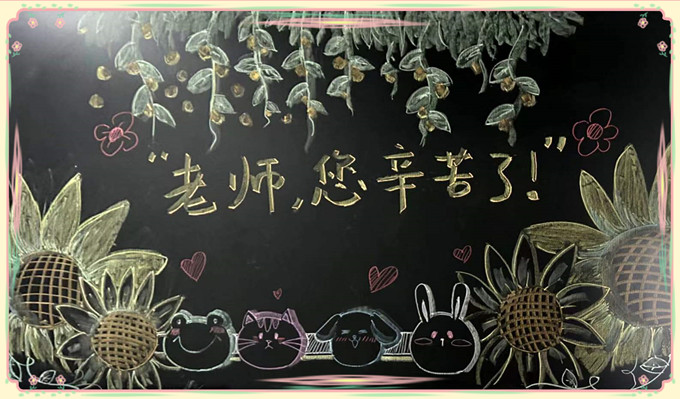 “老师,您辛苦了!”